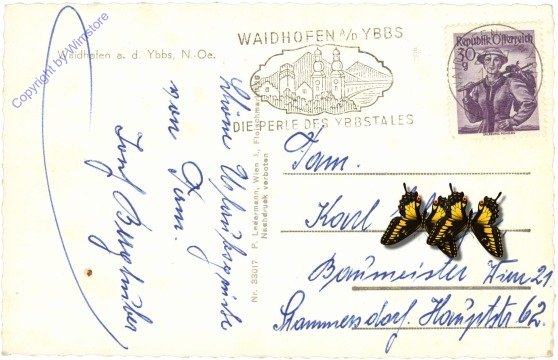 Waidhofen a. d. Ybbs, N.-Oe.
Copyright by Winstore
WAIDHOFEN a/D YBBS
DIE PERLE DES YBBSTALES
Republik Österreich
30 g
Schöne Urlaubsgrüße
von Fam.
Josef
Nr. 33017 P. Ledermann, Wien I., Fleischmarkt
Nachdruck verboten
Fam.
Karl
Baumeister Wien 21
Stammersdorf. Hauptstr 62.